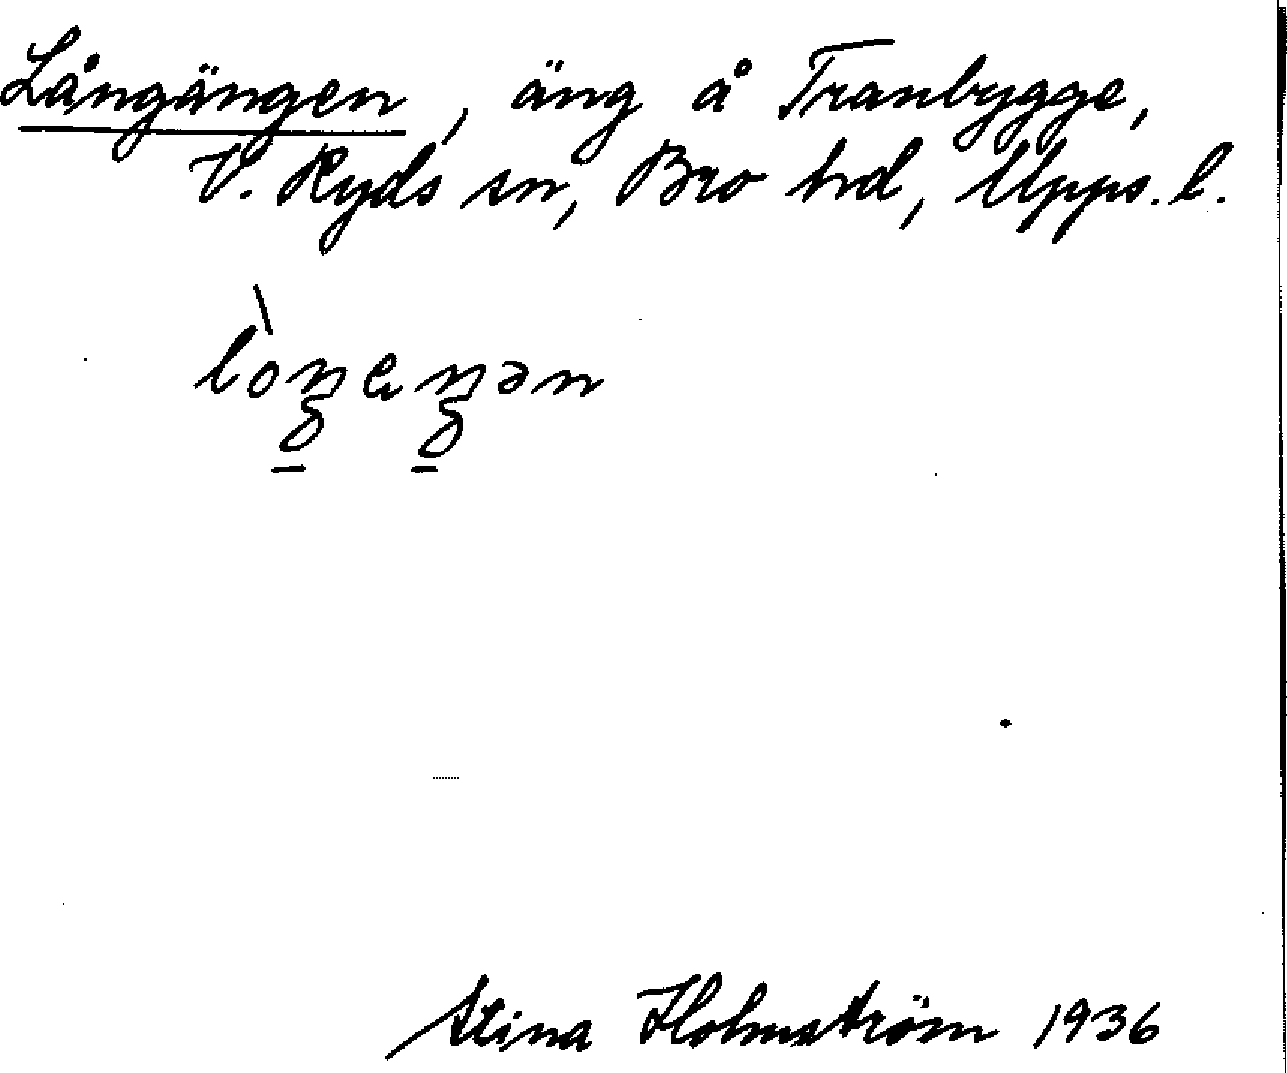 Långängen, äng å Tranbygge,
V. Ryds sn, Bro hrd, Upps. l.
Stina Holmström 1936